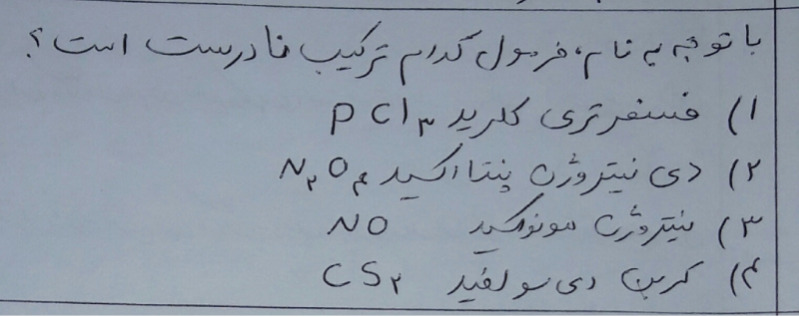 با توجه به نام، فرمول کدام ترکیب نادرست است؟
۱) فسفر تری کلرید PCl۳
۲) دی نیتروژن پنتا اکسید N۲O۴
۳) نیتروژن مونواکسید NO
۴) کربن دی سولفید CS۲